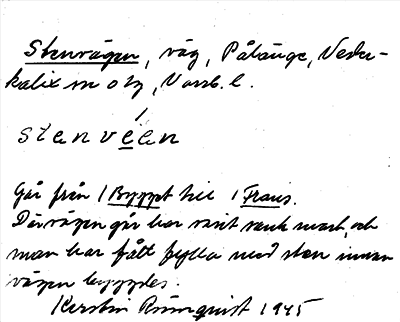 Stenvägen, väg, Pålänge, Neder-
kalix sn o tg, Norrb. l.
stenvéen
Går från 1 Byggt till 1 Frans.
Där vägen går har varit sank mark, och
man har fått fylla med sten innan
vägen byggdes.
Kerstin Rönnquist 1945